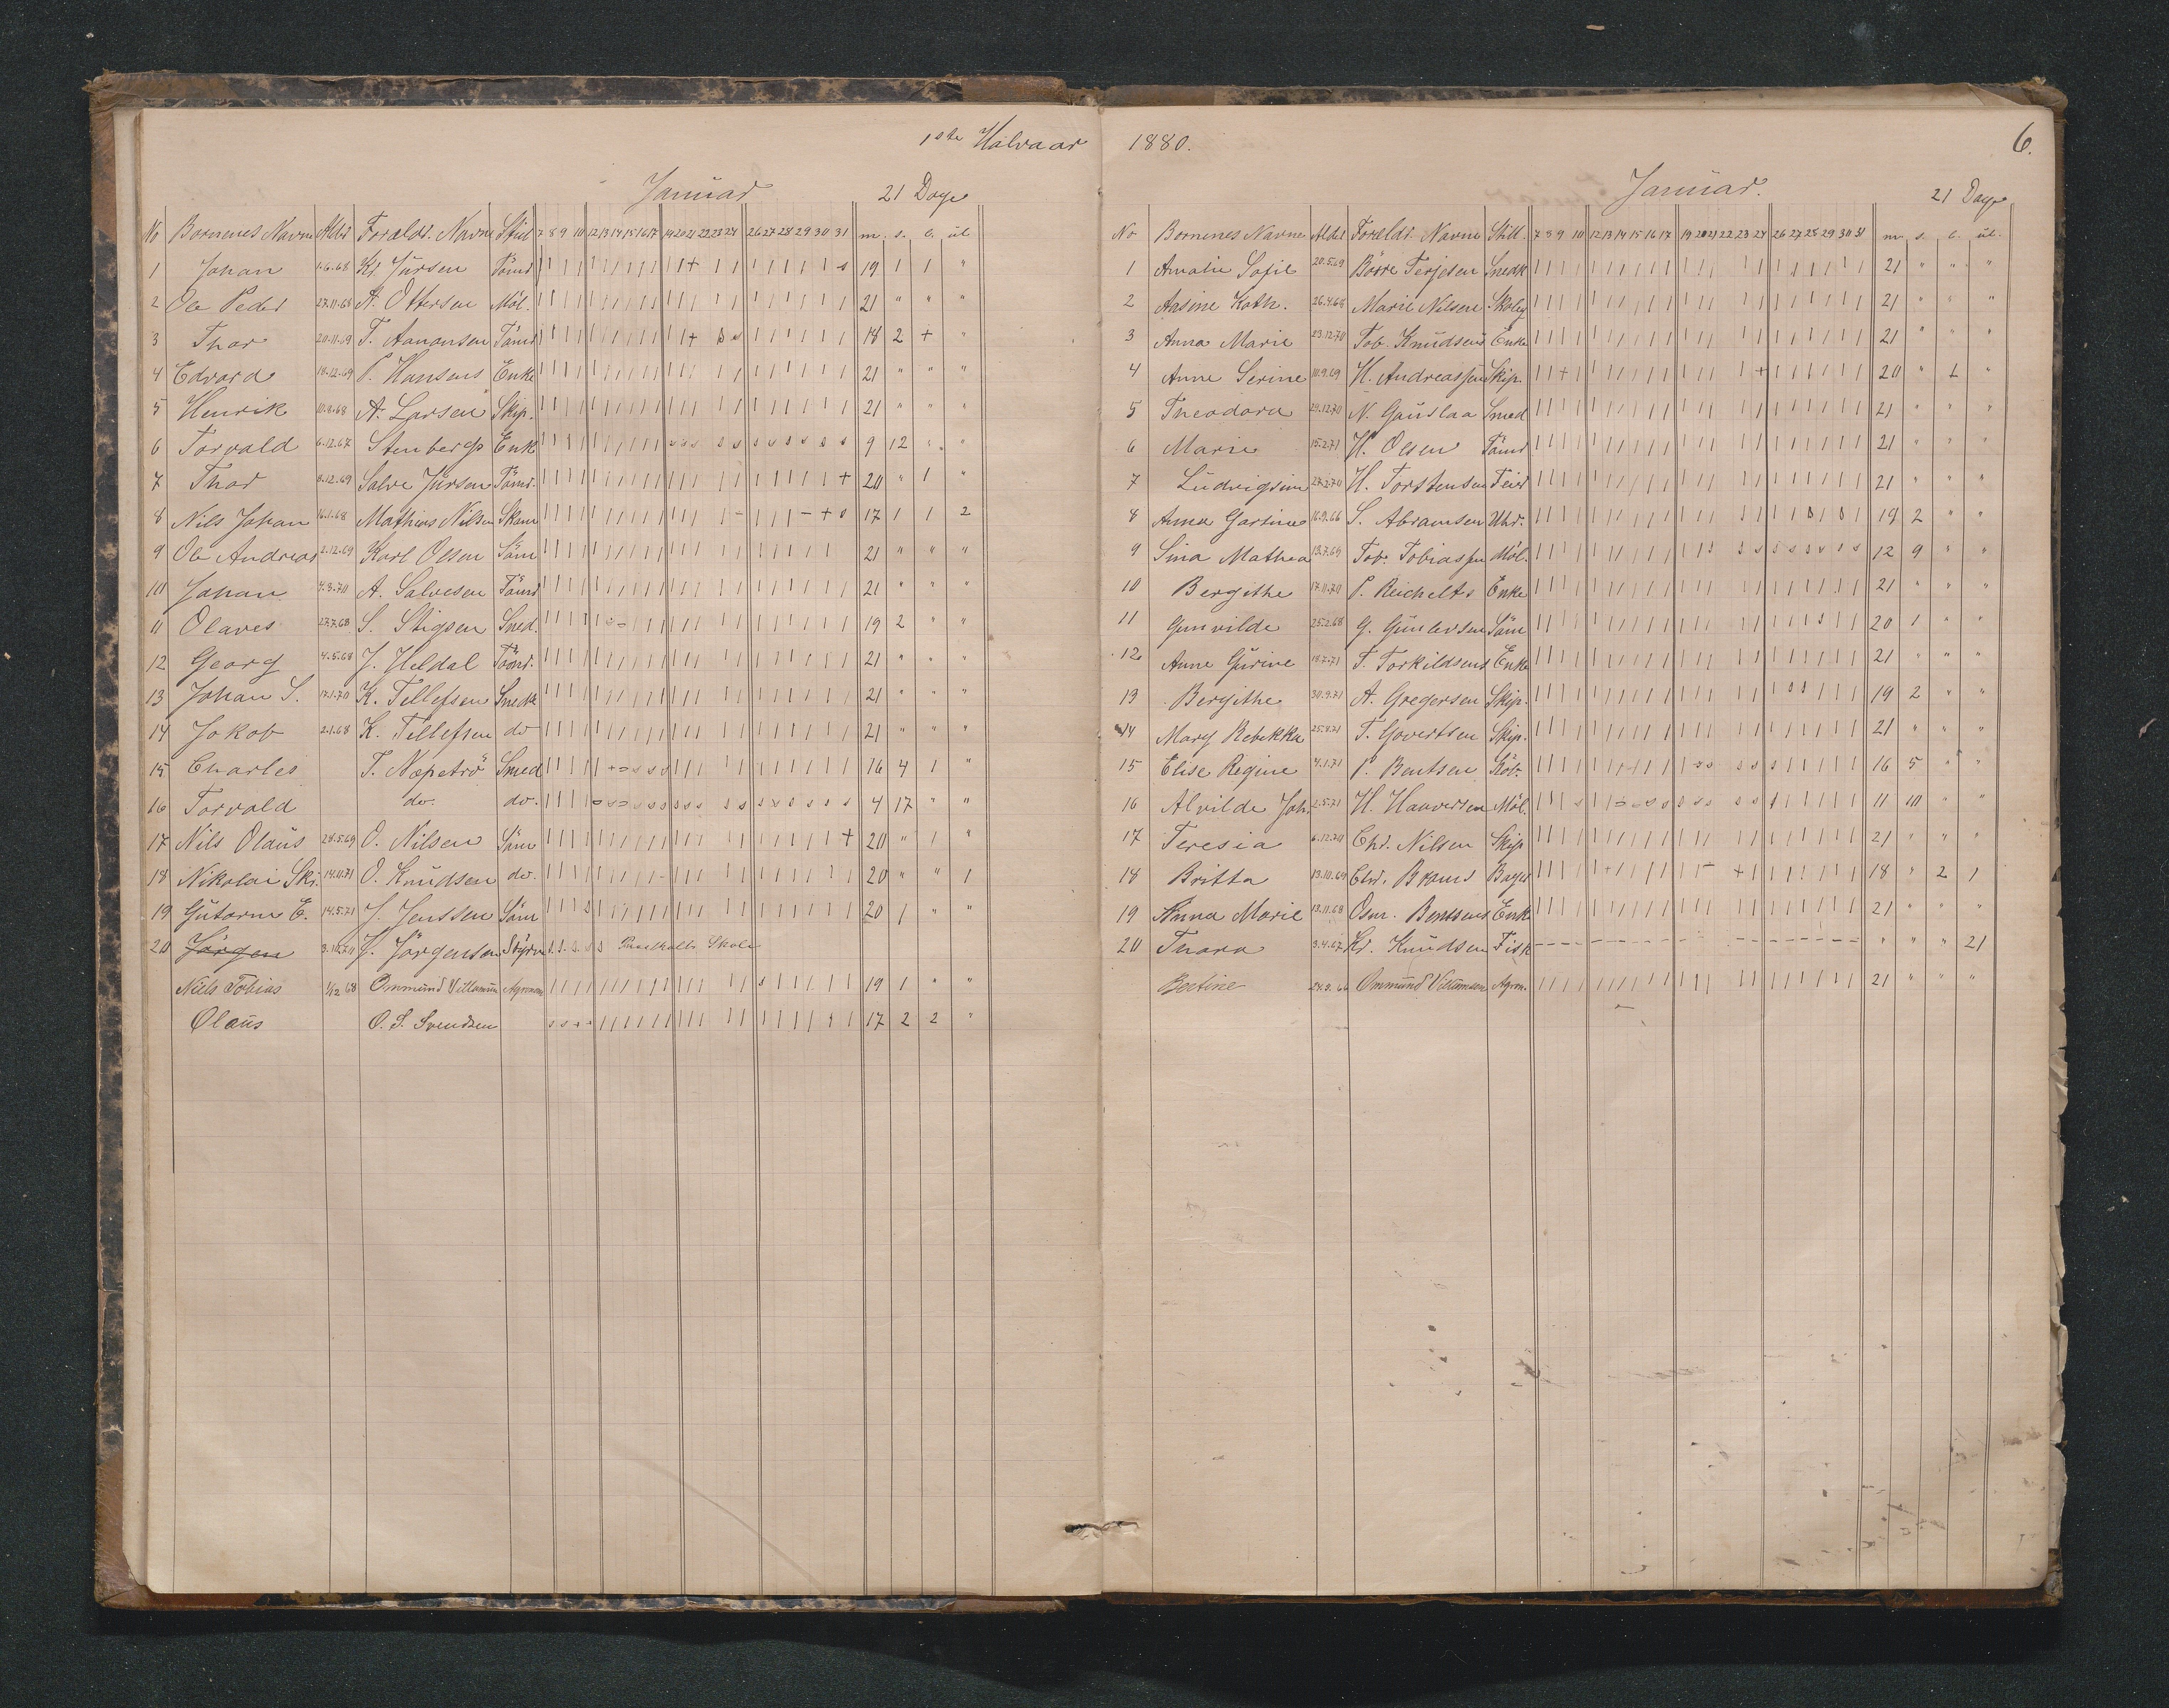 1ste Halvaar
Januar 21 Dage
No Børnenes Navne Alder Foræld. Navne Still 7 8 9 10 12 13 14 15 16 17 19 20 21 22 23 24 26 27 28 29 30 31 m. s. l. ul.
1 Johan 1.6.68 Kr. Jürsen Tömd 19 1 1 "
2 Ole Peder 27.11.68 A. Ottersen Möl. 21 " " "
3 Thor 20.11.69 T. Aanonsen Tömd 18 2 + "
4 Edvard 18.12.69 P. Hansens Enke 21 " " "
5 Henrik 10.8.68 A. Larsen Skip. 21 " " "
6 Torvald 6.12.67 Stenbergs Enk 9 12 " "
7 Thor 8.12.69 Salve Jürsen Tömd. 20 " 1 "
8 Nils Johan 16.1.68 Mathias Nilsen Skom 17 1 1 2
9 Ole Andreas 2.12.69 Karl Olsen Söm 21 " " "
10 Johan 4.3.70 A. Salvesen Tömd 21 " " "
11 Olaves 27.7.68 S. Stigsen Sned. 19 2 " "
12 Georg 4.5.68 J. Heldal Tömd. 21 " " "
13 Johan S. 17.1.70 K. Tellefsen Snedk 21 " " "
14 Jakob 2.1.68 K. Tellefsen do 21 " " "
15 Charles T. Næpetrö Smed 16 4 1 "
16 Torvald do. do. 4 17 " "
17 Nils Olaüs 28.5.69 O. Nilsen Söm 20 " 1 "
18 Nikolai Skr. 14.11.71 O. Knüdsen do. 20 " " 1
19 Gütorm E. 14.5.71 J. Jenssen Söm 20 1 " "
20 Jörgen J. Jörgensen Styrm s s s s s Skole
Niels Tobias 1/12 68 Ommünd Villümsen Agronom 19 1 " "
Olaüs O. S. Svendsen 17 2 2 "
1880. 6.
Januar. 21 Dage
No Børnenes Navne Alder Foræld. Navne Still. 7 8 9 10 12 13 14 15 16 17 19 20 21 22 23 24 26 27 28 29 30 31 m s. l. ul.
1 Amalie Sofie 20.5.69 Börre Terjesen Snedk 21 " " "
2 Aasine Kath. 26.4.68 Marie Nilsen Skoleg 21 " " "
3 Anna Marie 23.12.70 Tob. Knüdsens Enke 21 " " "
4 Anne Serine 10.9.69 H. Andreassen Skip. 20 " 1 "
5 Theodora 29.12.70 N. Gauslaa Smed 21 " " "
6 Marie 15.2.71 H. Olsen Tömd 21 " " "
7 Lüdvigsine 27.2.70 H. Torstensen Feier 21 " " "
8 Anna Gurine 16.9.66 S. Abramsen Uhr. 19 2 " "
9 Sina Mathea 13.7.69 Tob. Tobiassen Möl. 12 9 " "
10 Bergithe 17.11.70 P. Reichelts Enke 21 " " "
11 Gunvilde 25.2.68 G. Günlevsen Söm 20 1 " "
12 Anne Gürine 18.7.71 T. Torkildsens Enke 21 " " "
13 Bergithe 30.9.71 A. Gregersen Skip. 19 2 " "
14 Mary Rebekka 25.8.71 T. Govertsen Skip. 21 " " "
15 Elise Regine 4.1.71 P. Bentsen Köb. 16 5 " "
16 Alvilde Joh. 2.5.71 H. Hauversen Möl. 11 10 " "
17 Teresia 6.12.70 Chr. Nilsen Skip 21 " " "
18 Britta 13.10.69 Chr. Brams Bager 18 " 2 1
19 Anna Marie 13.11.68 Osm. Bentsens Enke 21 " " "
20 Thora 3.4.67 Kr. Knüdsen Fisk " " " 21
Bertine 24.9.66 Ommünd Villümsen Agron. 21 " " "